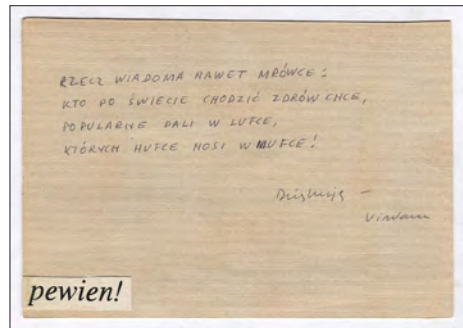 RZECZ WIADOMA NAWET MRÓWCE:
KTO PO ŚWIECIE CHODZIĆ ZDRÓW CHCE,
POPULARNE PALI W LUFCE,
KTÓRYCH HUFCE NOSI W MUFCE!
Dziękuję –
pewien!